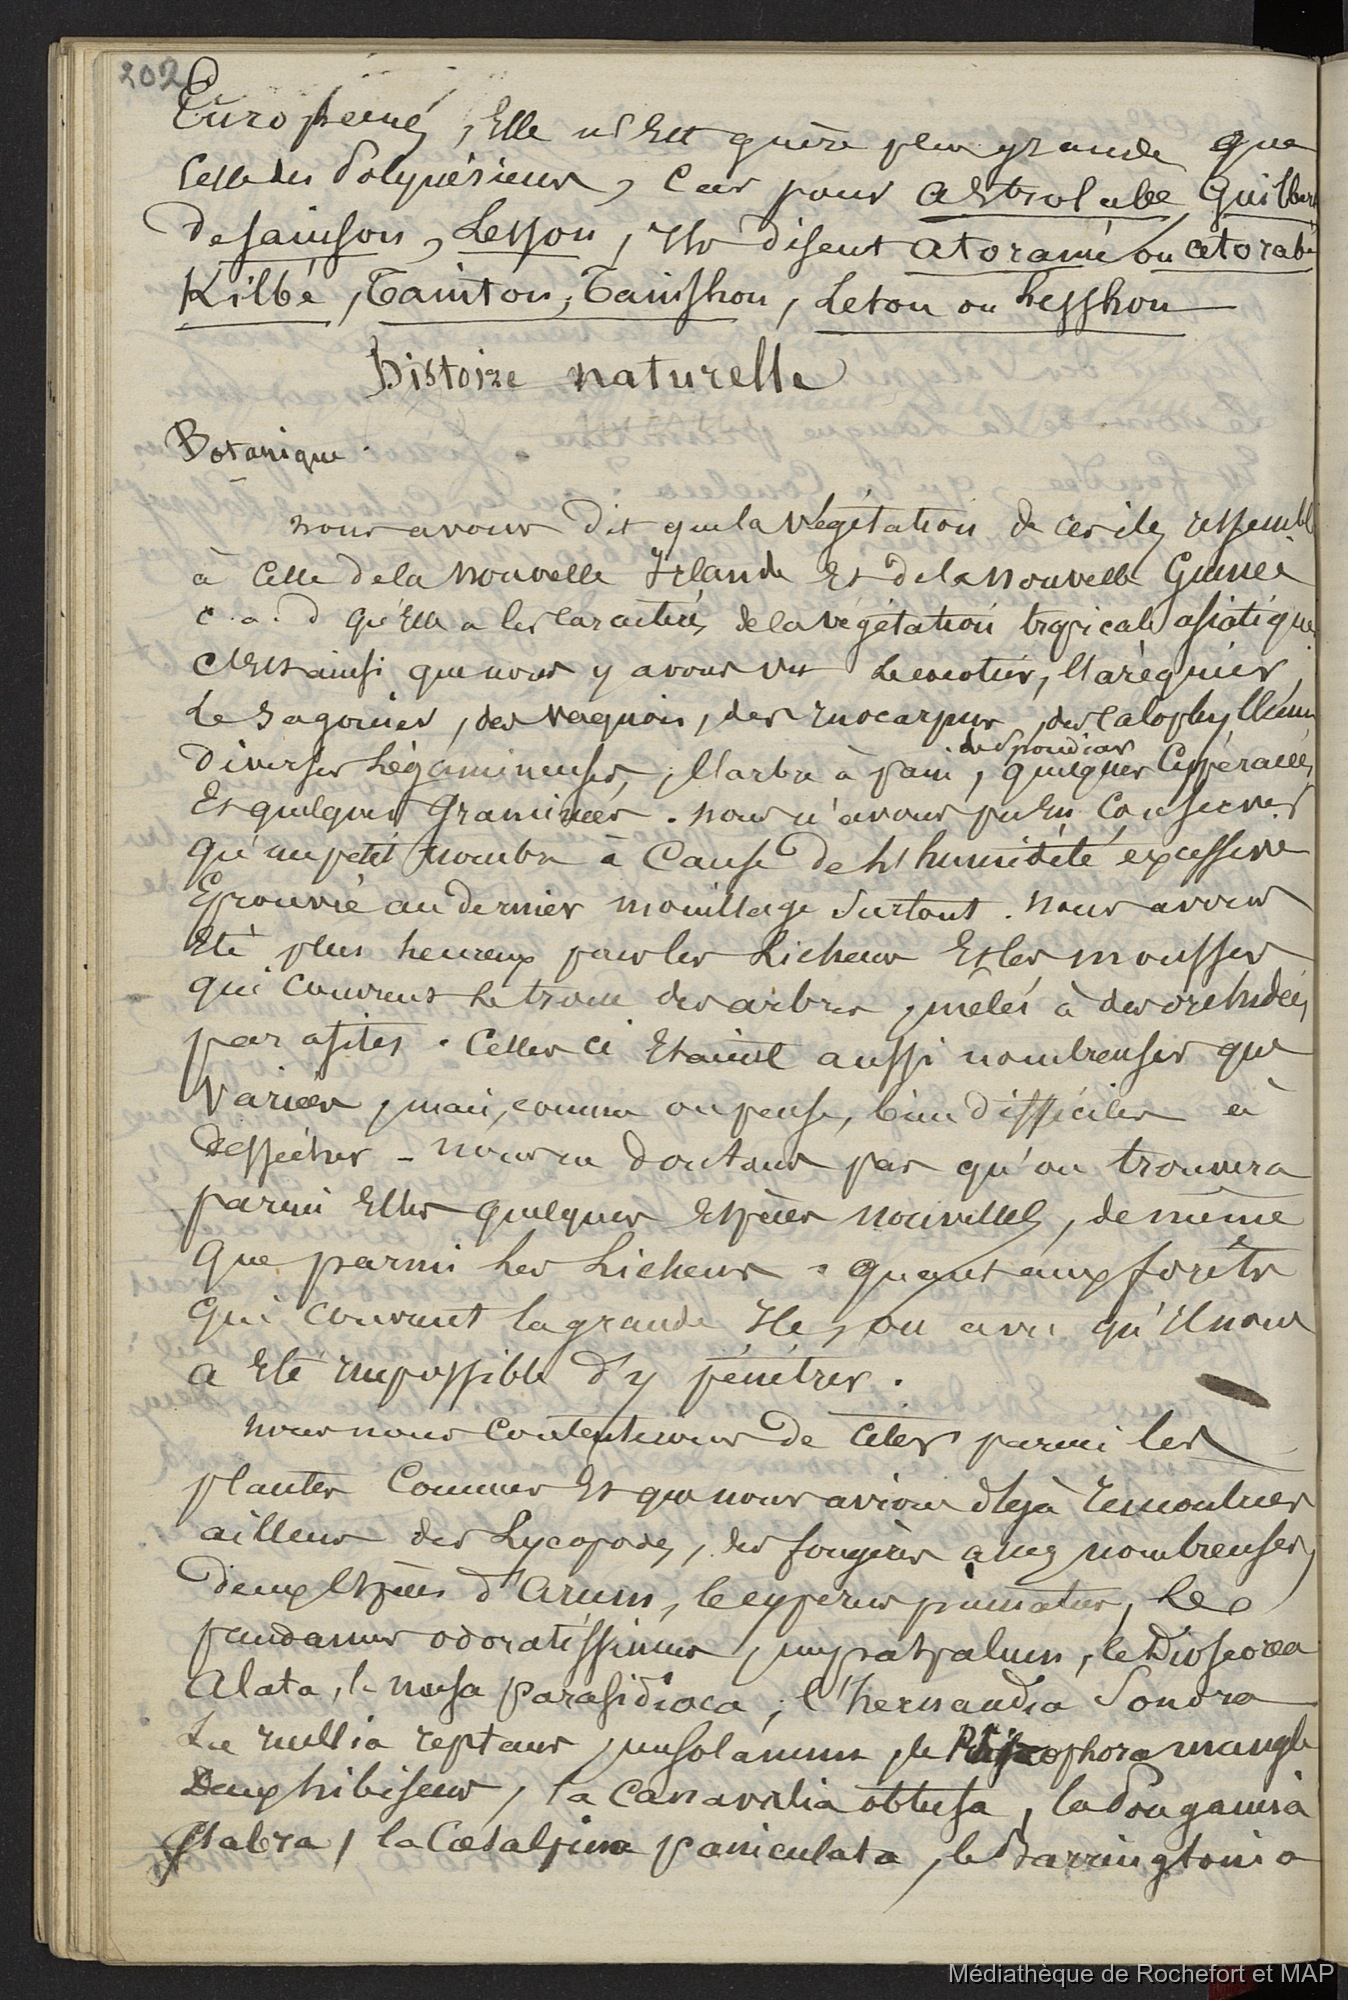 202
Européens, Elle n'Est guère plus grande que
Celle des Polynésiens, Car pour Astrolabe, Guilbert
de sainson, Lesson, Ils disent atoramé ou atorabé
Kilbé, Tainton, Tainshon, Leton ou Lesshon
Histoire naturelle
Botanique.
nous avons dit que la végétation de ces iles ressemble
à Celle de la nouvelle Irlande Et de la nouvelle Guinée
c. a. d qu'Elle a les Caractères de la végétation tropicale asiatique
C'Est ainsi que nous y avons vu Le cocotier, l'aréquier,
le sagouier, des vaquois, des inocarpus, des Calophyllum
des spondias
diverses Légumineuses, l'arbre à pain, quelques Cypéracées
Et quelques graminées. nous n'avons pu En Conserver
qu'un petit nombre à Cause de l'humidité excessive
Eprouvée au dernier mouillage surtout. nous avons
Eté plus heureux pour les Lichens Et les mousses
qui Couvrent le tronc des arbres, mêlés à des orchidées
parasites. Celles ci Etaient aussi nombreuses que
variées, mais, comme on pense, bien difficiles à
dessécher - nous ne doutons pas qu'on trouvera
parmi Elles quelques Espèces nouvelles, de même
que parmi Les Lichens. quant aux forêts
qui couvrent la grande Ile, on a vu qu'Il nous
a Eté impossible d'y pénétrer.
nous nous contenterons de citer parmi les
plantes Connues Et que nous avions déjà rencontrées
ailleurs des Lycopodes, des fougères assez nombreuses,
deux Espèces d'Arum, le cyperus pennatus, Le
pandanus odoratissimus, un paspalum, le Dioscorea
Alata, le musa parasidiaca, l'hernandia Sonora
La ruellia reptans, un solanum, le Rhizophora mangle
deux hibiscus, la Canavalia obtusa, la Pongamia
glabra, la Cæsalpina paniculata, le Barringtonia
Médiathèque de Rochefort et MAP